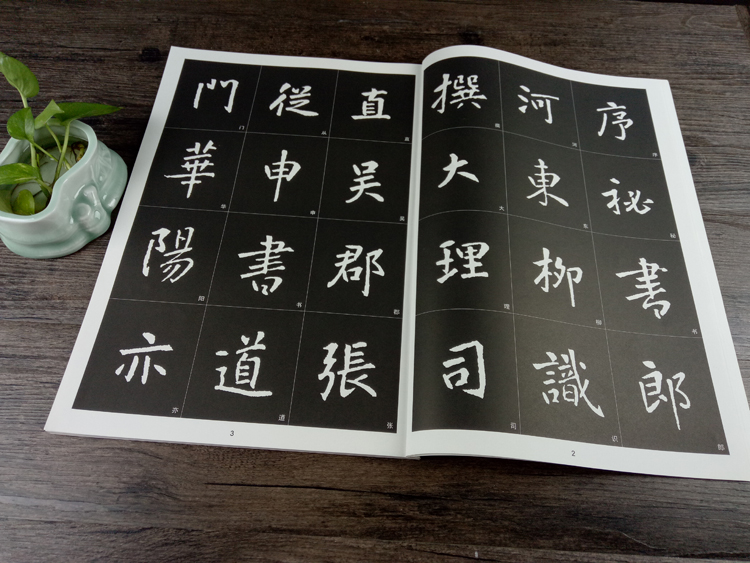 序秘書郎
序秘书郎
河東柳識
河东柳识
撰大理司
撰大理司
2
直吳郡張
直吴郡张
從申書道
从申书道
門華陽亦
门华阳亦
3